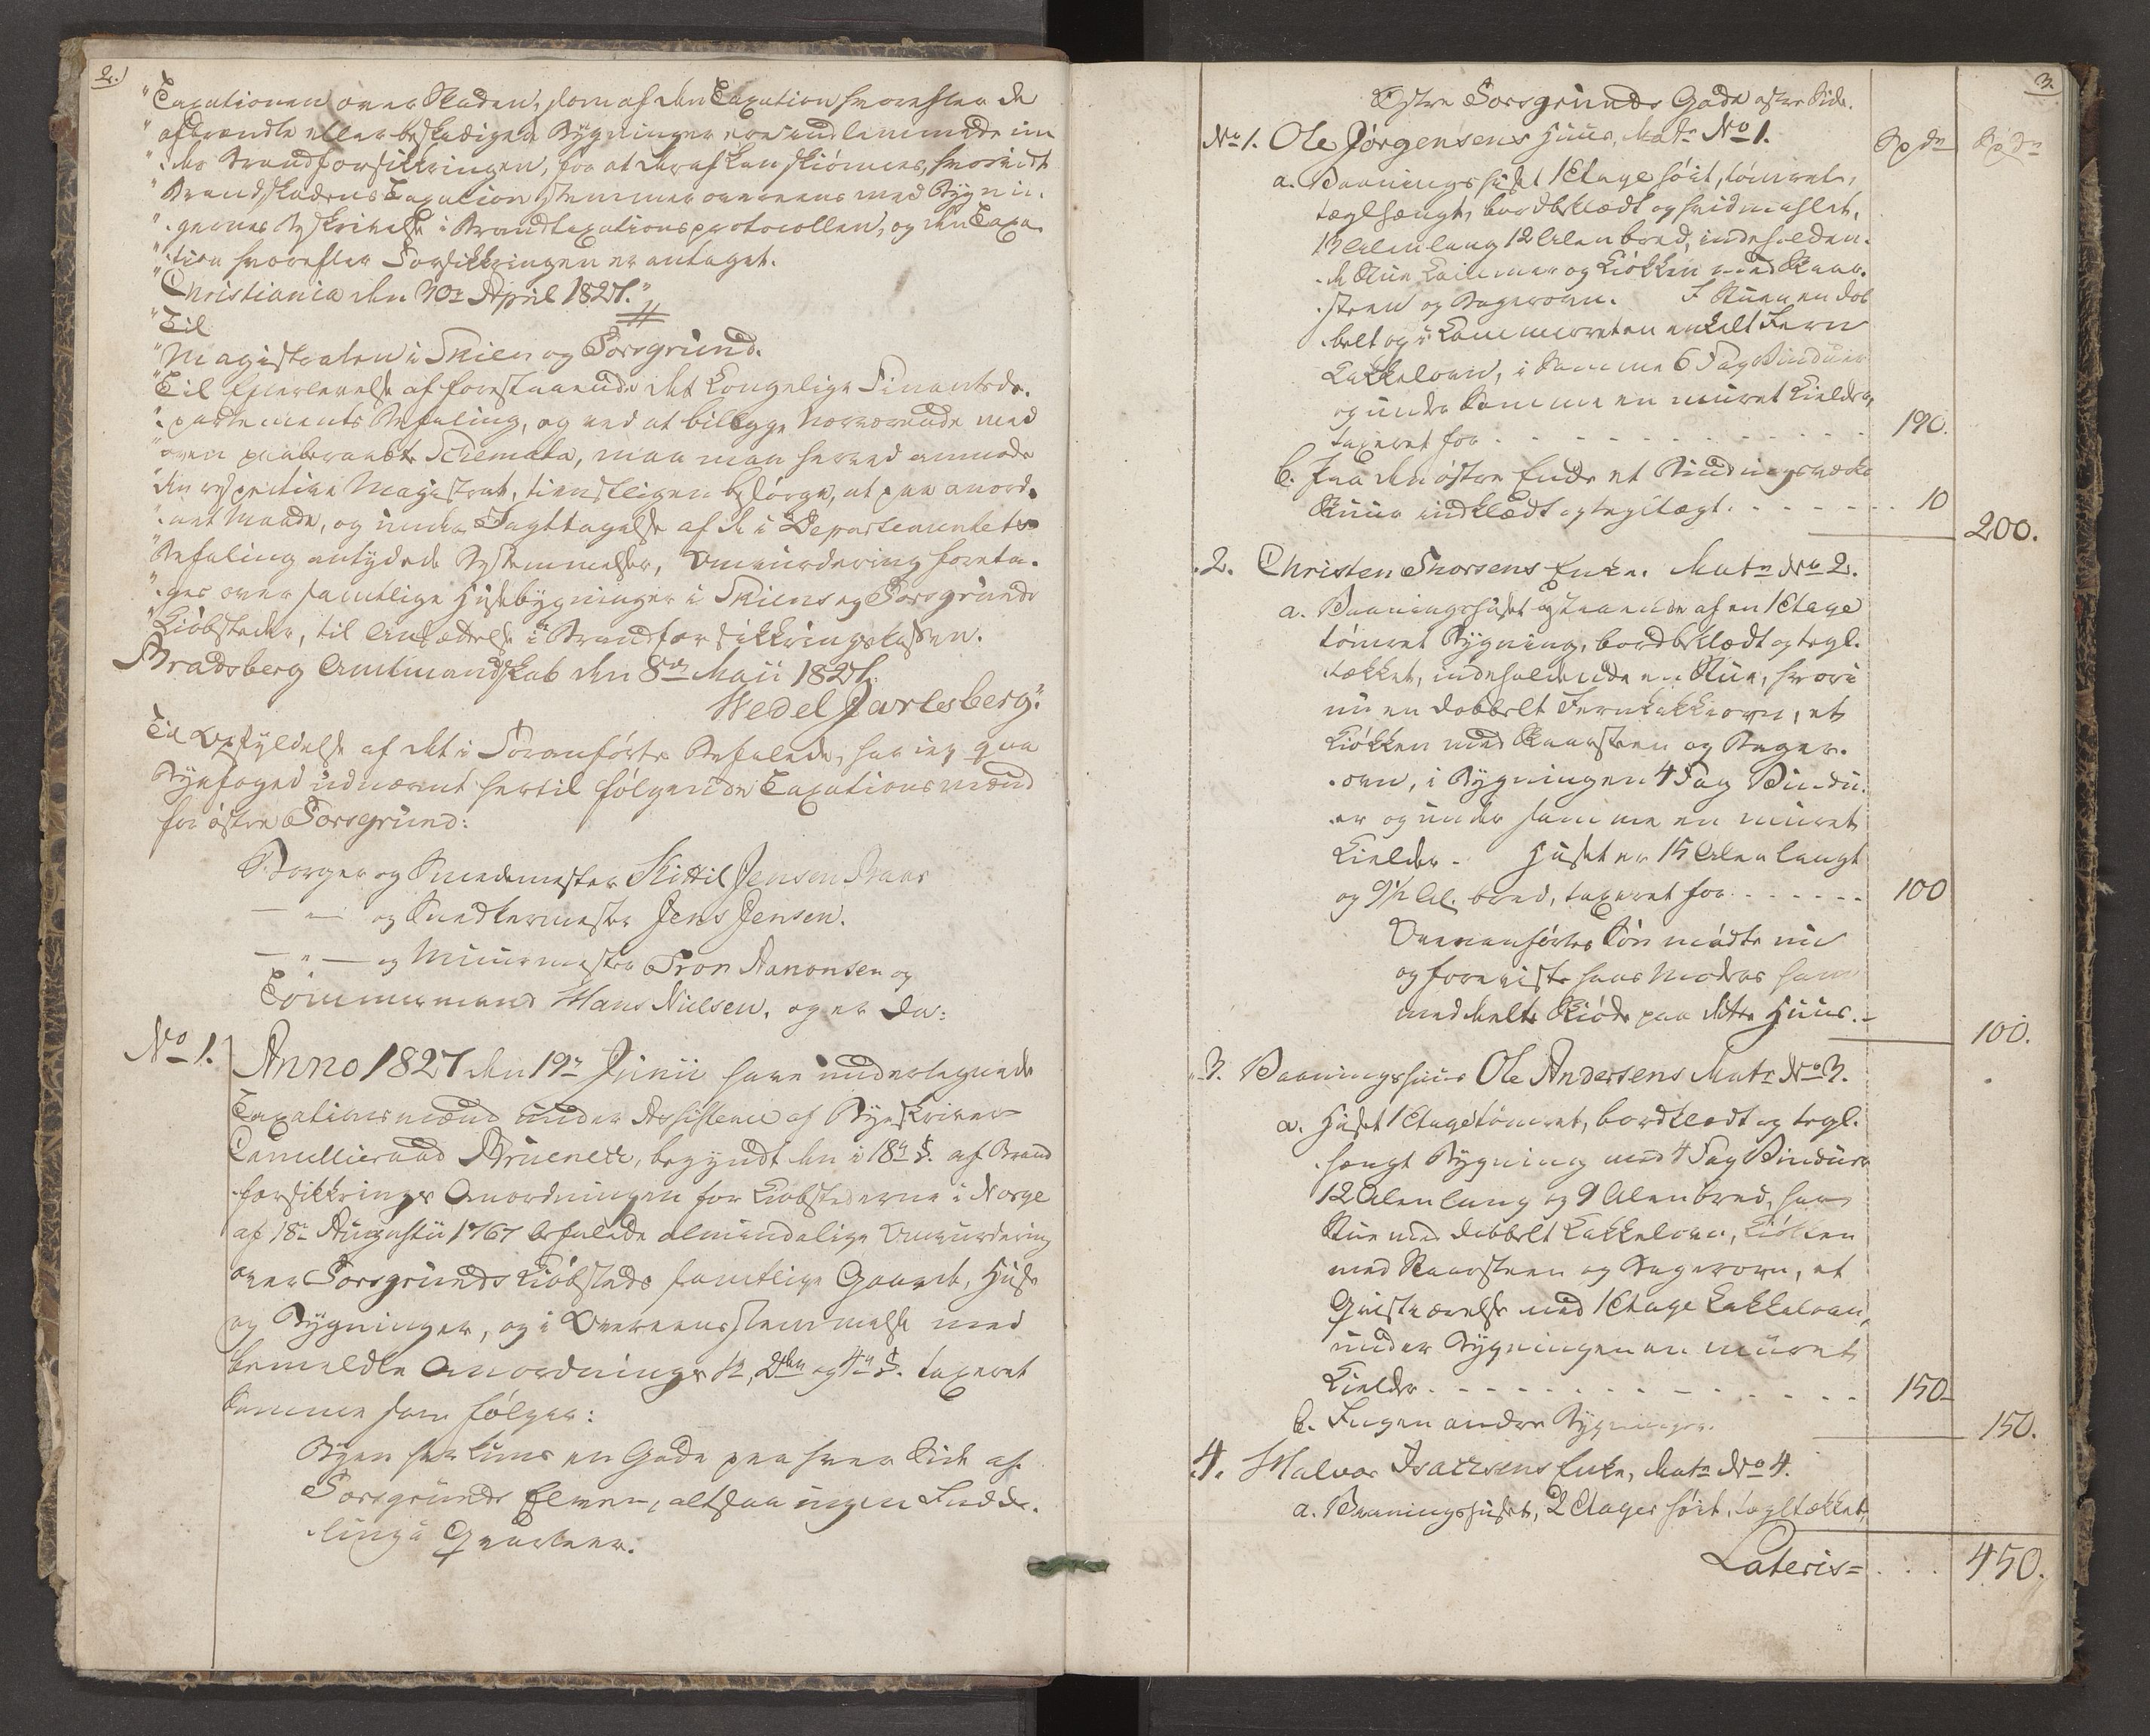 2.)
"Taxationen over Skaden, som af den Taxation hvorefter de
"afbrændte eller beskadigede Bygninger ere indlemmede im
"de Brandforsikkringen, for at deraf kan skiønnes, hvorvidt
"Brandskadens Taxation stemmer overeens med Bygnin-
"gernes Beskrivelse i Brandtaxationsprotocollen, og den Taxa-
"tion hvorefter Forsikkringen er antaget.
"Christiania den 30te April 1827."
"Til
"Magistraten i Skien og Porsgrund.
"Til Efterlevelse af forestaaende det Kongelige Finantsde-
"partements Befaling, og ved at bilægge nærværende med
"oven paaberaabte Schemata, maa man herved anmode
den respective Magistrat, tienstligen besørge, at paa anord-
"net Maade, og under Iagttagelse af de i Departementets
"Befaling antydede Bestemmelser, Omvurdering foreta-
"ges over samtlige Huusebygninger i Skiens og Porsgrunds
"Kiøbsteder, til Ansættelse i Brandforsikkringskassen.
Bradsberg Amtmandskab den 8de Maii 1827.
Wedel Jarlsberg."
Til Opfyldelse af det i Foranførte Befalede, har jeg qva
Byefoged udnævnt hertil følgende Taxationsmænd
for østre Porsgrund:
Borger og Smedemester Kittil Jensen Braas
— " — og Snedkermester Jens Jensen.
— " — og Muurmester Tron Aanonsen og
Tømmermand Hans Nielsen, og er da:
No 1.
Anno 1827 den 19de Junii have undertegnede
Taxationsmænd under Assistence af Byeskriver
Cancellieraad Bruenech, begyndt den i 18de §. af Brand
forsikkrings Anordningen for Kiøbstederne i Norge
af 18de Augustii 1767 befalede almindelige Omvurdering
over Porsgrunds Kiøbsteds samtlige Gaarde, Huse
og Bygninger, og i Overeensstemmelse med
bemeldte Anordnings 1te, 2den og 4de §. taxeret
samme som følger:
Byen har kuns en Gade paa hver Side af
Porsgrunds Elven, altsaa ingen Indde-
ling i Qvarterer.
3.
Østre Porsgrunds Gade østre Side.
No 1. Ole Jørgensens Huus, Matr No 1.
Spdr Spdr
a. Vaaningshuset 1 Etage høit, tømret,
teglhængt, bordklædt og hvidmahlet,
13 Alen lang 12 Alen bred, indeholden-
de Stue Kammer og Kiøkken med Skaar-
steen og Bagerovn. I Stuen en dob
belt og i Kammeret en enkelt Jern
Kakkelovn, i Samme 6 Fag Vinduer
og under Samme en muret Kielder,
taxeret for . . . . . . . . 190.
b. Paa den østre Ende et Bindingsværks
Skuur indklædt og tegltægt. . . . . . . . 10
200.
2. Christen Thorsens Enke. Matr No 2.
a. Vaaningshuset bestaaende af en 1 Etage
tømret Bygning, bordklædt og tegl-
tækket, indeholdende en Stue, hvori
nu en dobbelt Jernkakkelovn, et
Kiøkken med Skaarsteen og Bager-
ovn, i Bygningen 4 Fag Vindu-
er og under samme en muret
Kielder. Huset er 15 Alen langt
og 9½ Al. bred, taxeret for . . . . . . 100
Ovenanførtes Søn mødte nu
og foreviste hans Moders ham
meddeelte Skiøde paa dette Huus.
100.
3. Vaaningshuus Ole Andersens Matr No 3.
a. Huset 1 Etage tømret, bordklædt og tegl-
hængt Bygning med 4 Fag Vinduer
12 Alen lang og 9 Alen bred, har
Stue med dobbelt Kakkelovn, Kiøkken
med Skaarsteen og Bagerovn, et
Giesteværelse med 1 Etage Kakkelovn,
under Bygningen en muret
Kielder . . . . . . . . 150
b. Ingen andre Bygninger.
150.
4. Halvor Isacsens Enke, Matr No 4.
a. Vaaningshuset, 2 Etager høit, tegltækket,
Lateris = . . . 450.